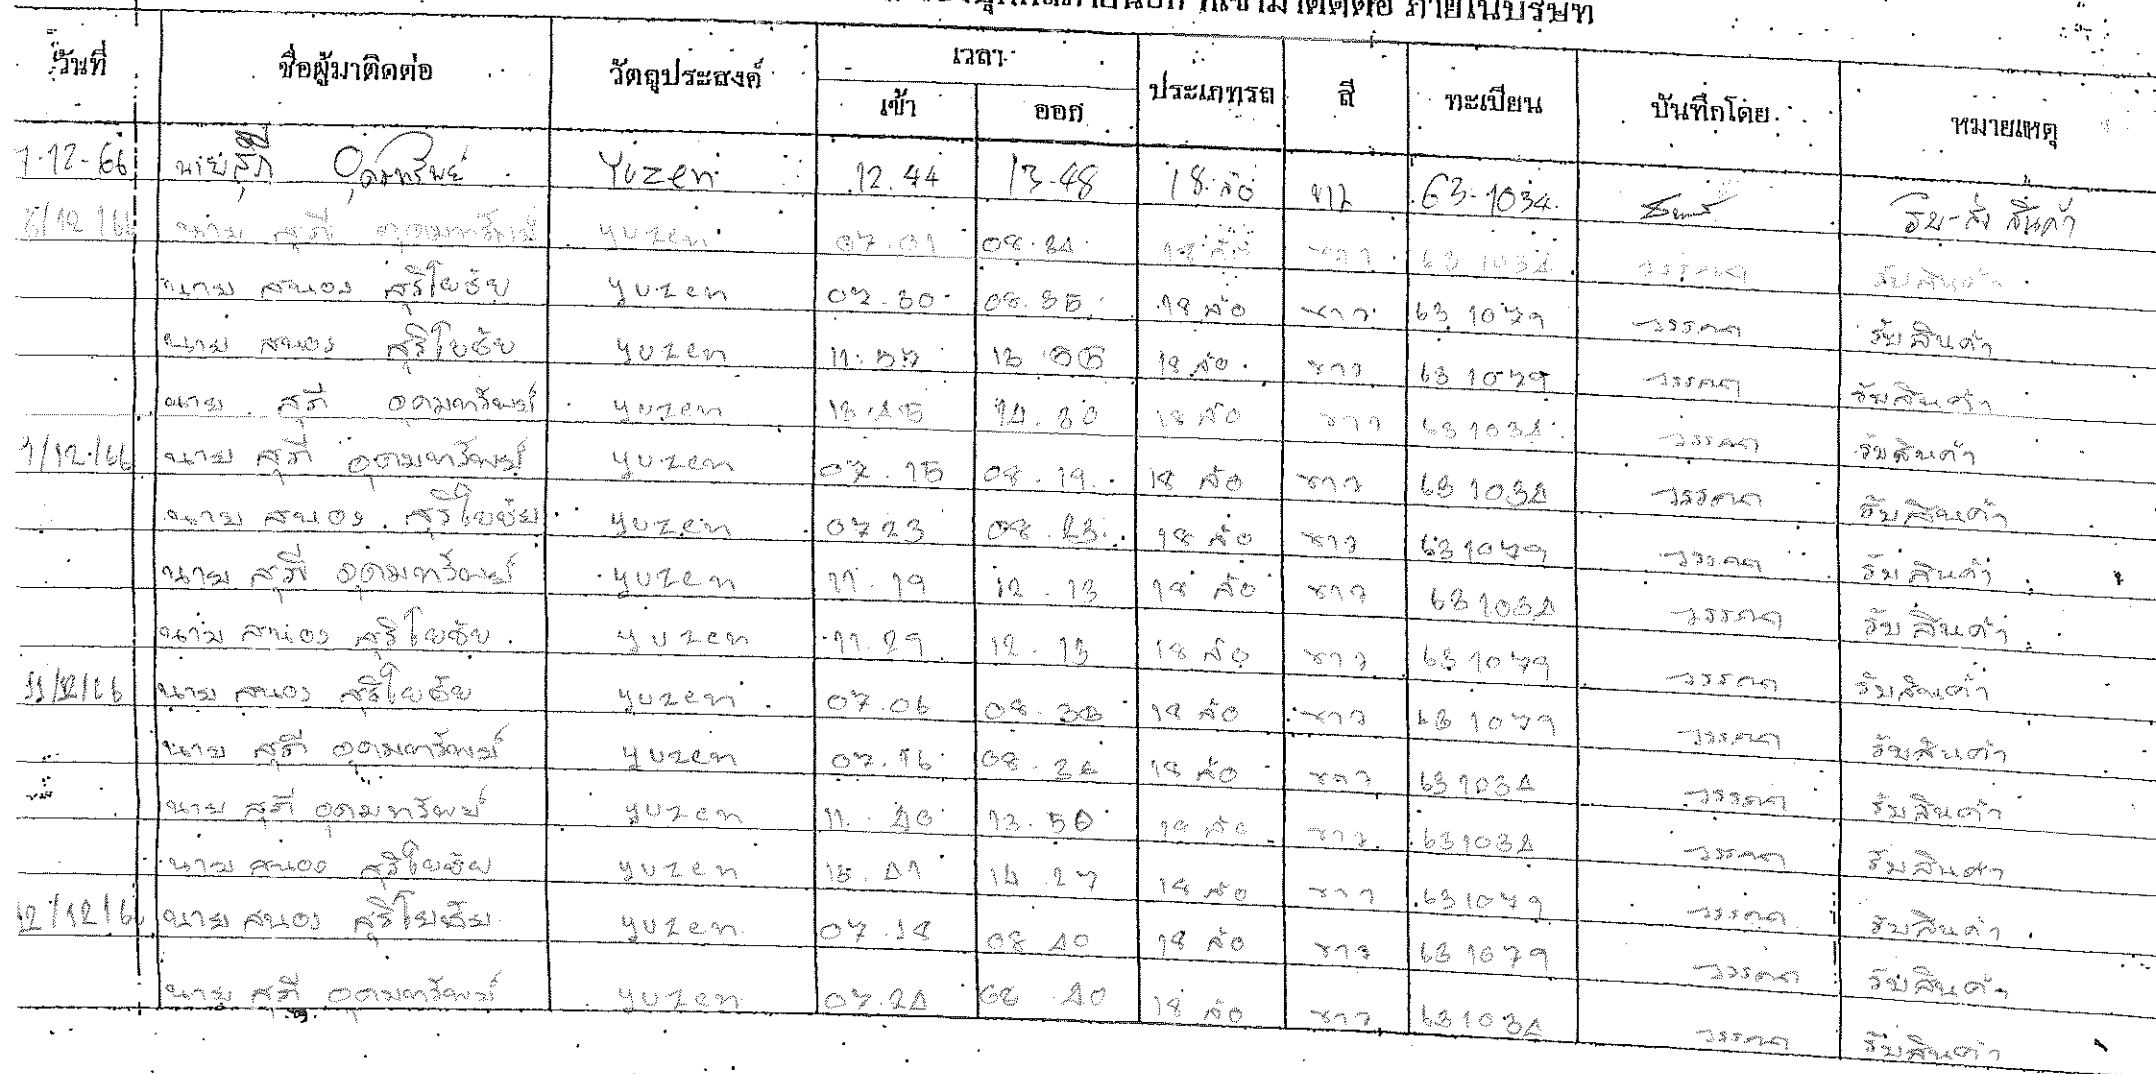 ที่เข้ามาติดต่อ ภายในบริษัท
วันที่ ชื่อผู้มาติดต่อ วัตถุประสงค์ เวลา เข้า ออก ประเภทรถ สี ทะเบียน บันทึกโดย หมายเหตุ
7-12-66 นายสุภี อุดมทรัพย์ Yuzen 12.44 13-48 18 ล้อ ขาว 63-1034 รับ-ส่ง สินค้า
8/12/66 นาย สุภี อุดมทรัพย์ yuzen 07.01 08.34 18 ล้อ ขาว 63 1034 วรรคต รับสินค้า
นาย สนอง สุริโยชัย yuzen 07.30 08.35 18 ล้อ ขาว 63 1079 วรรคต รับสินค้า
นาย สนอง สุริโยชัย yuzen 11.57 13 05 18 ล้อ ขาว 63 1079 วรรคต รับสินค้า
นาย สุภี อุดมทรัพย์ yuzen 13.45 14.30 18 ล้อ ขาว 63 1034 วรรคต รับสินค้า
9/12/66 นาย สุภี อุดมทรัพย์ yuzen 07.15 08.19 18 ล้อ ขาว 63 1034 วรรคต รับสินค้า
นาย สนอง สุริโยชัย yuzen 07 23 08.23 18 ล้อ ขาว 63 1079 วรรคต รับสินค้า
นาย สุภี อุดมทรัพย์ yuzen 11.19 12.13 18 ล้อ ขาว 63 1034 วรรคต รับสินค้า
นาย สนอง สุริโยชัย yuzen 11.29 12.13 18 ล้อ ขาว 63 1079 วรรคต รับสินค้า
11/12/66 นาย สนอง สุริโยชัย yuzen 07.06 18 ล้อ ขาว 63 1079 วรรคต รับสินค้า
นาย สุภี อุดมทรัพย์ yuzen 07.16 08.24 18 ล้อ ขาว 63 1034 วรรคต รับสินค้า
นาย สุภี อุดมทรัพย์ yuzen 11.40 13.50 18 ล้อ ขาว 63 1034 วรรคต รับสินค้า
นาย สนอง สุริโยชัย yuzen 15.41 16 27 18 ล้อ ขาว 63 1079 วรรคต รับสินค้า
12/12/66 นาย สนอง สุริโยชัย yuzen 07.18 08 40 18 ล้อ ขาว 63 1079 วรรคต รับสินค้า
นาย สุภี อุดมทรัพย์ yuzen 07.24 08 40 18 ล้อ ขาว 63 1034 วรรคต รับสินค้า